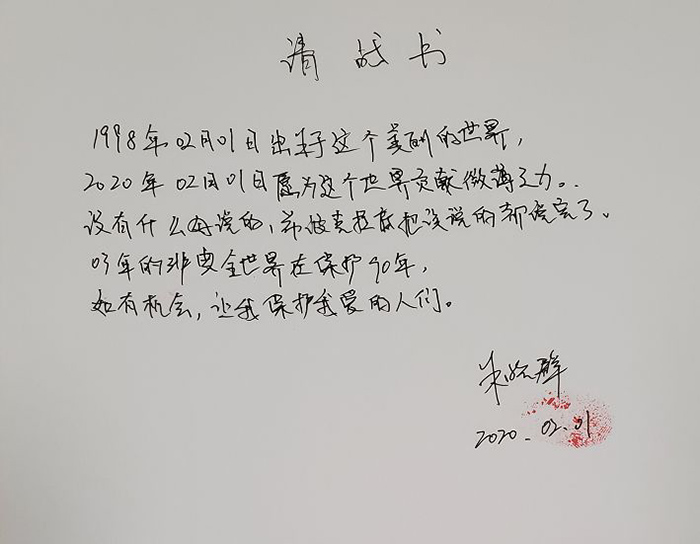 请战书
1998年02月01日出来于这个美丽的世界,
2020年02月01日愿为这个世界贡献微薄之力。
没有什么再说的,希波克拉底把该说的都说完了。
03年的非典全世界在保护90年,
如有机会,让我保护我爱的人们。
朱
2020.02.01